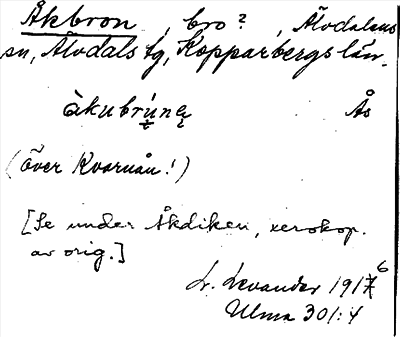 Åkbron, bro?, Älvdalens
sn, Älvdals tg, Kopparbergs län.
àkubrúnę Ås
(över Kvarnån!)
[Se under Åkdiken, xerokop.
av orig.]
L. Levander 1916
Ulma 301:4